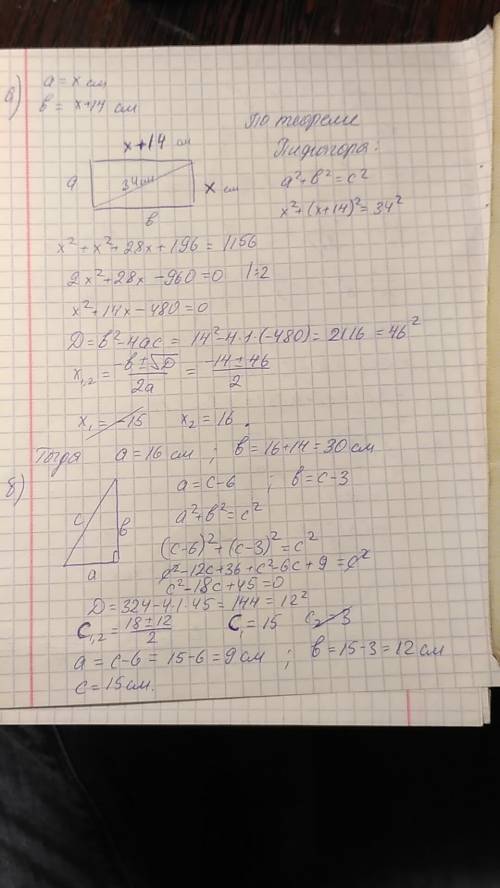 а) a = x см
b = x+14 см
По теореме
Пифагора:
x+14 см
a 34см x см
b
a²+b²=c²
x²+(x+14)²=34²
x²+x²+28x+196=1156
2x²+28x-960=0 |:2
x²+14x-480=0
D=b²-4ac = 14²-4·1·(-480)=2116=46²
x₁,₂ = -b±√D / 2a = -14±46 / 2
x₁=-15 x₂=16.
Тогда a=16 см ; b=16+14=30 см
б) a=c-6 ; b=c-3
a²+b²=c²
c b
a
(c-6)²+(c-3)²=c²
c²-12c+36+c²-6c+9=c²
c²-18c+45=0
D=324-4·1·45=144=12²
c₁,₂=18±12 / 2 c₁=15 c₂=3
a=c-6=15-6=9см ; b=15-3=12см
c=15см.